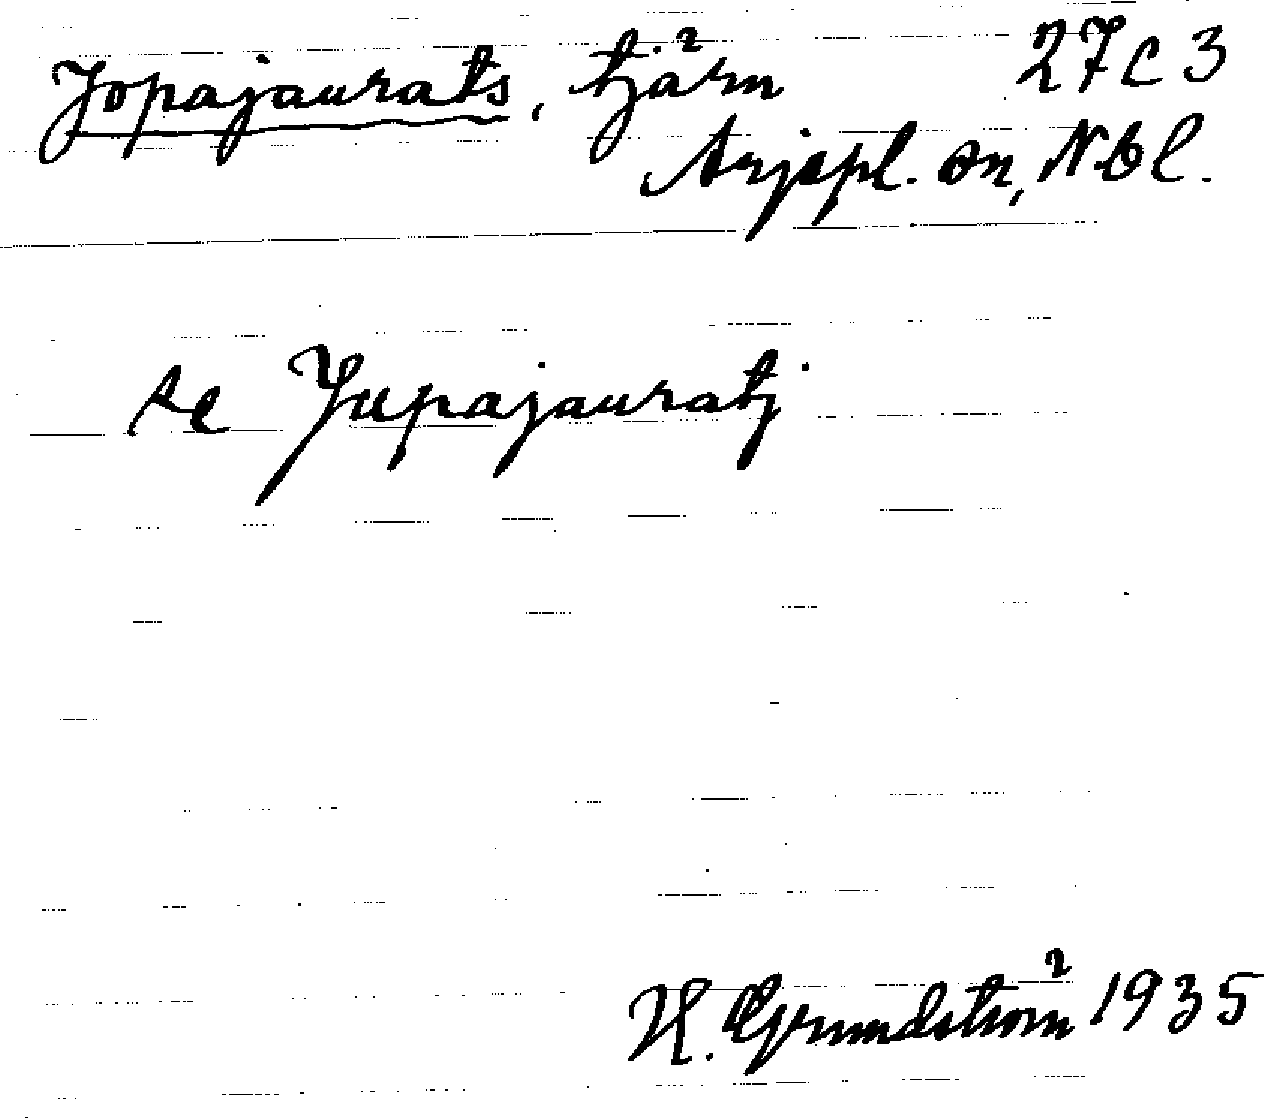 Jopajaurats, tjärn 27c3
Arjepl. sn, Nbl.
se Jupajauratj
H. Grundström 1935